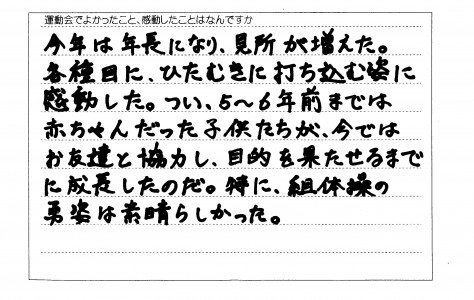 運動会でよかったこと、感動したことはなんですか
今年は年長になり、見所が増えた。
各種目に、ひたむきに打ち込む姿に
感動した。つい、5～6年前までは
赤ちゃんだった子供たちが、今では
お友達と協力し、目的を果たせるまで
に成長したのだ。特に、組体操の
勇姿は素晴らしかった。